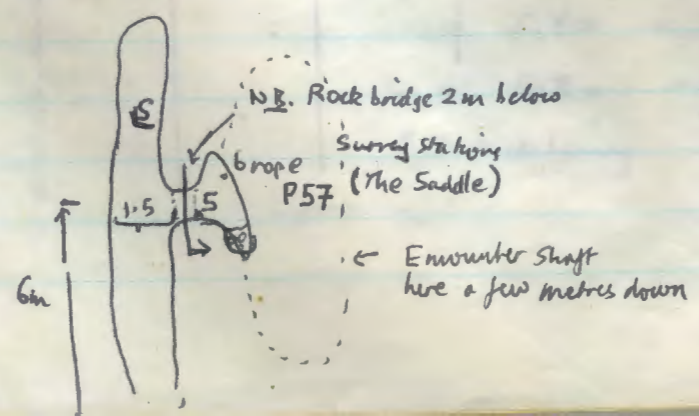 NB. Rock bridge 2m below
Survey stations
(The Saddle)
S
rope
P57
1.5
5
← Encounter shaft
here a few metres down
6m